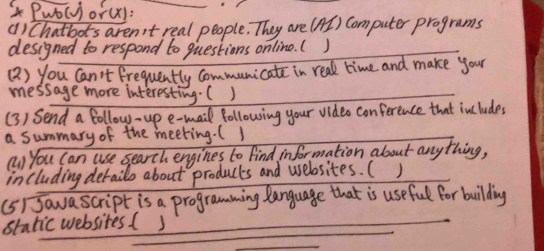 * Put (√) or (X):
(1) Chatbots aren't real people. They are (AI) Computer programs
designed to respond to questions online. ( )
(2) You can't frequently communicate in real time and make your
message more interesting. ( )
(3) Send a follow-up e-mail following your video conference that includes
a summary of the meeting. ( )
(4) You can use search engines to find information about anything,
including details about products and websites. ( )
(5) JavaScript is a programming language that is useful for building
static websites ( )